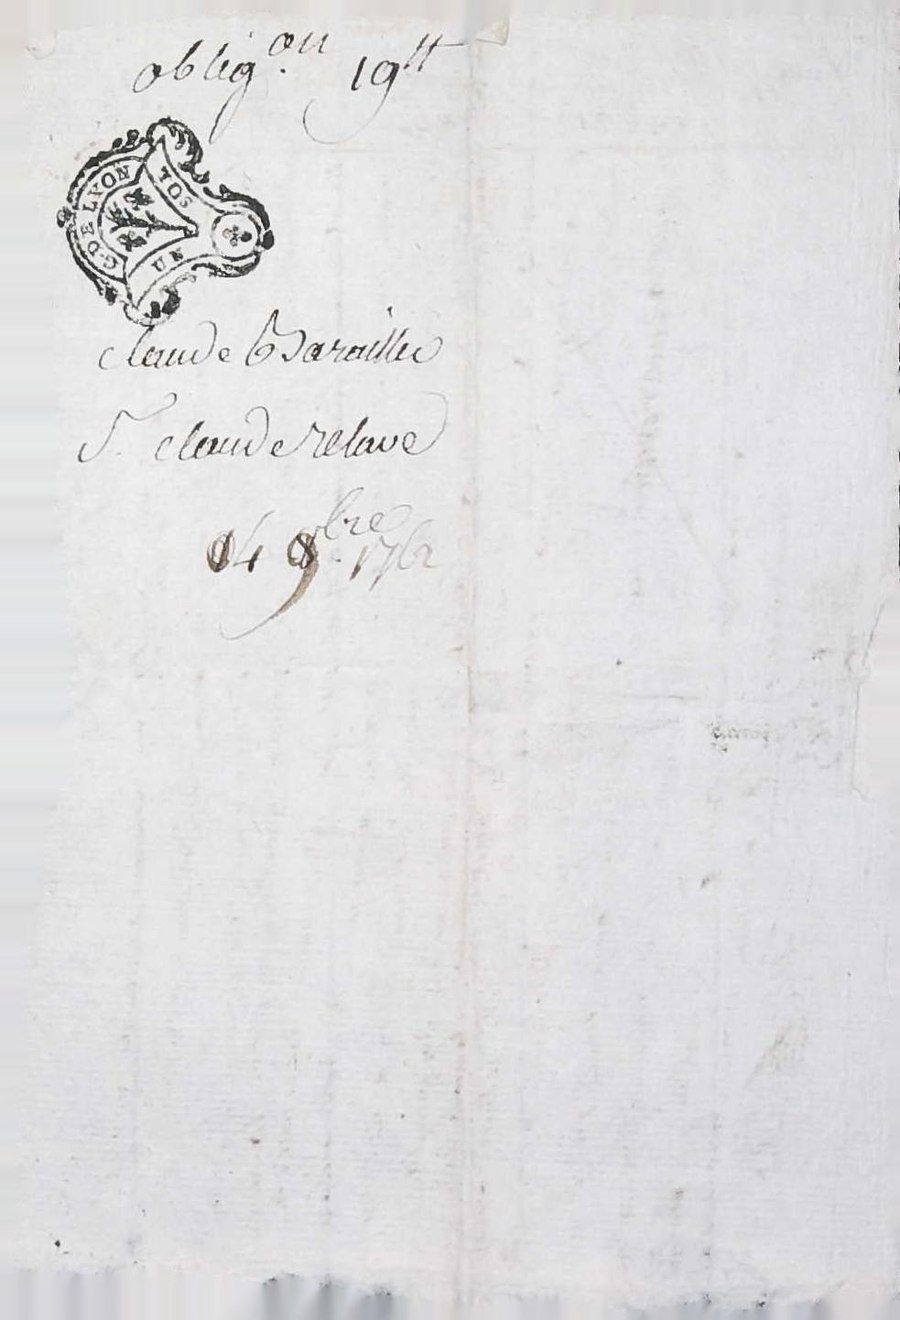 oblig.on 19tt
G. DE LYON
UN SOL
claude Barailler
S. claude relave
14 9bre 1762